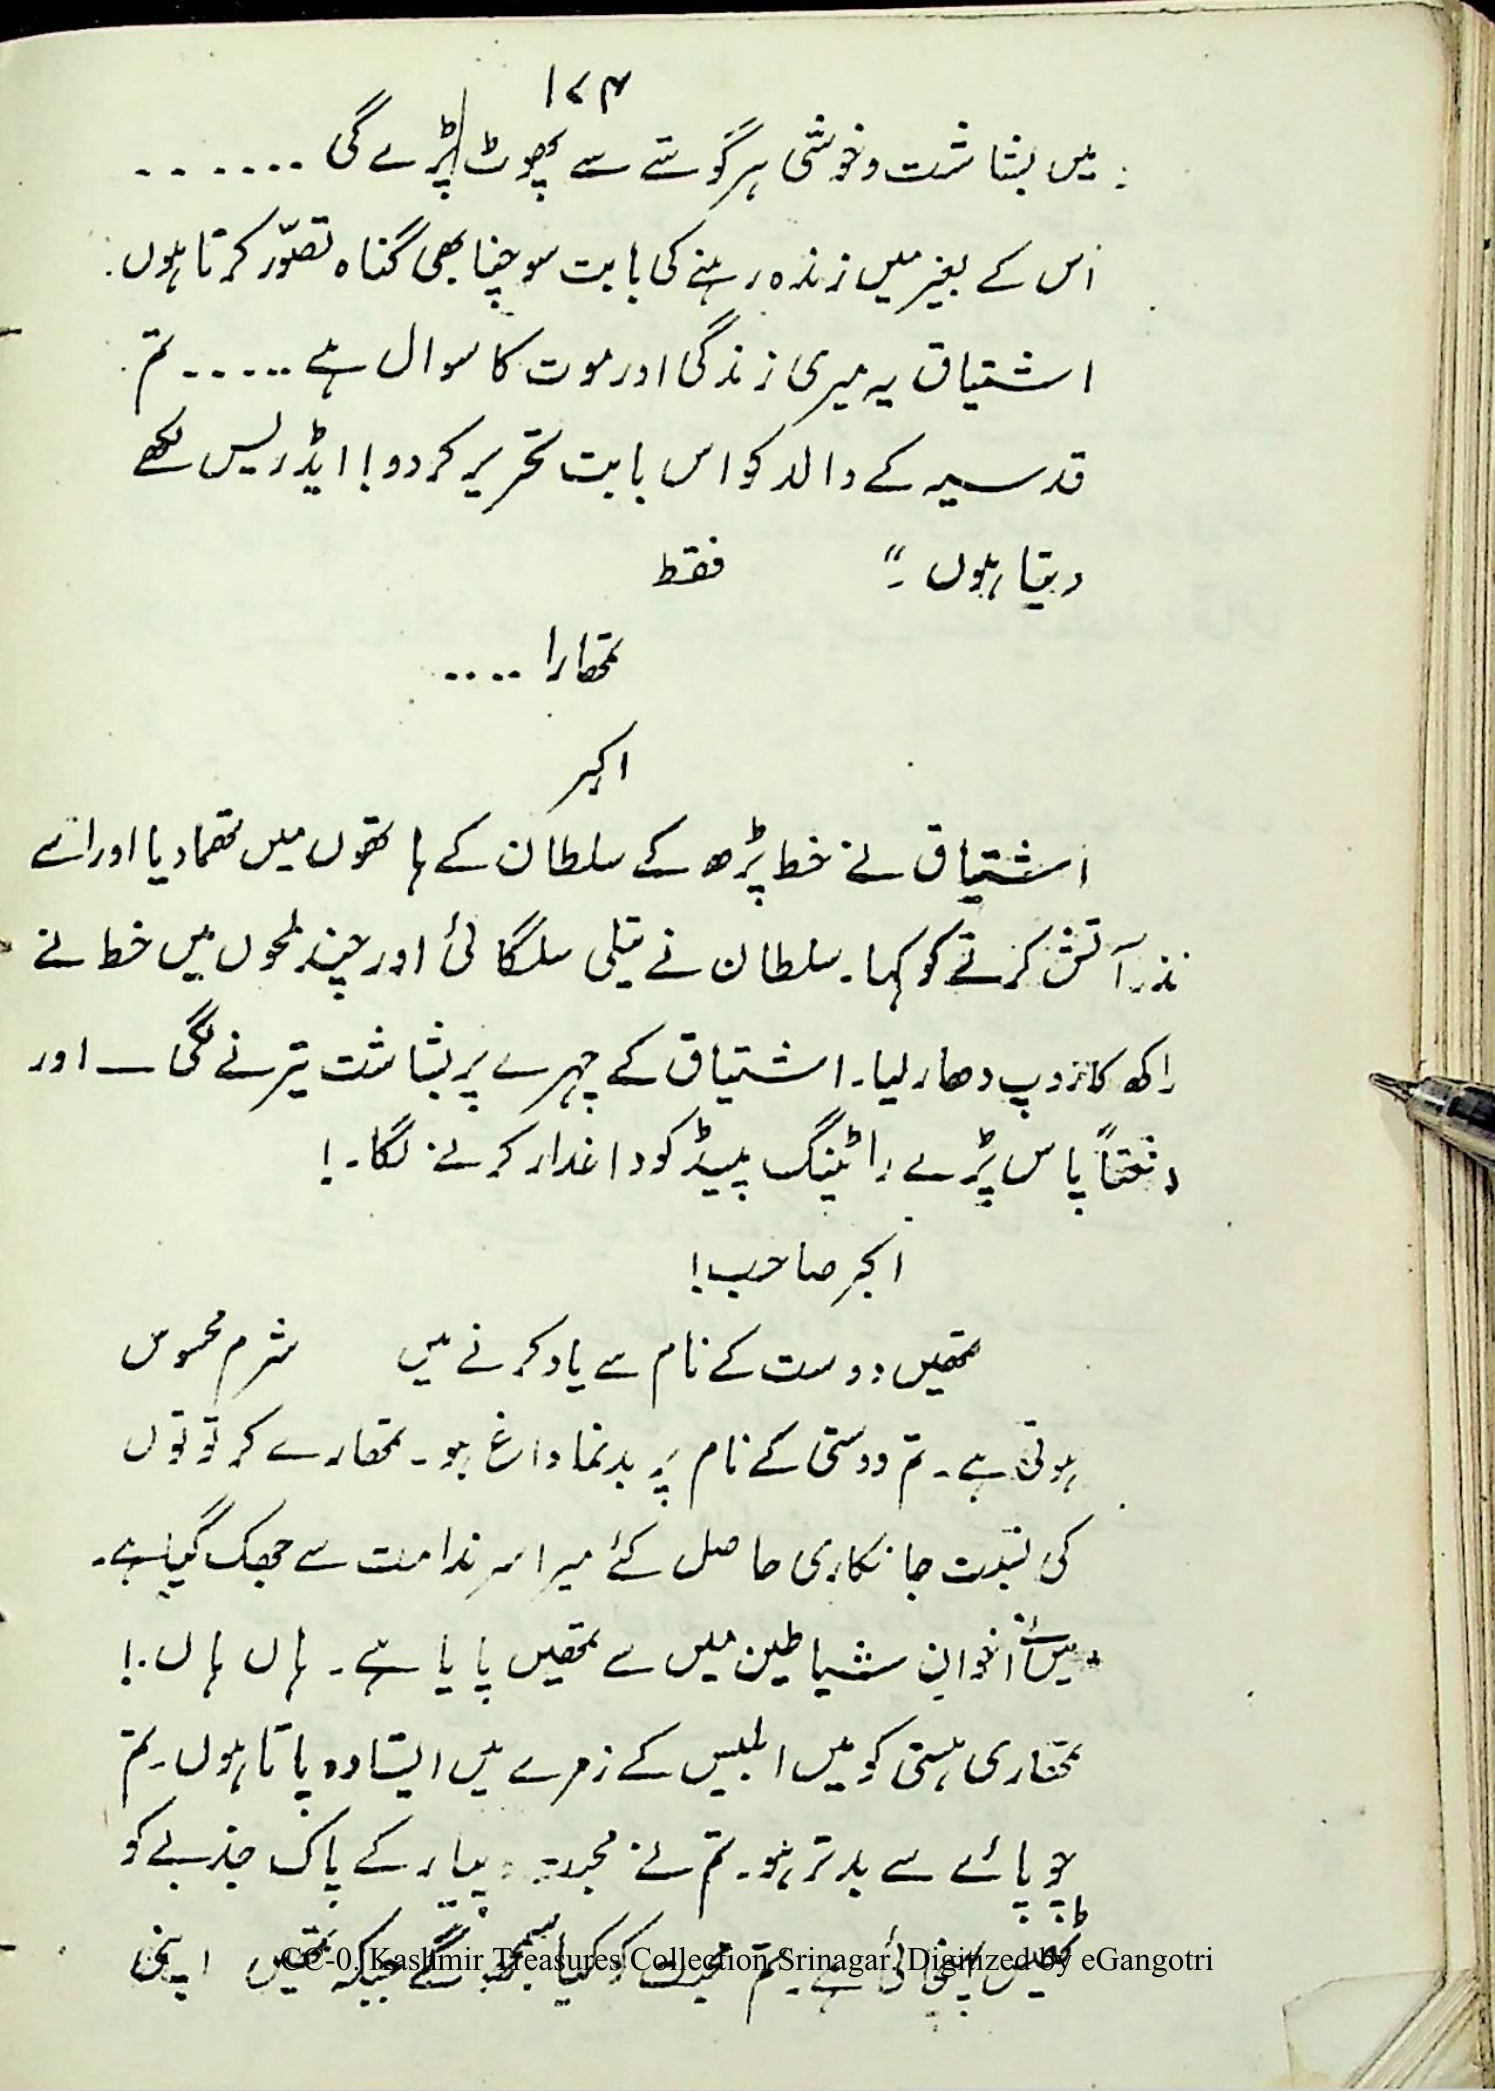 ۱۷۴
میں بشاشت و خوشی ہر گوشے سے پھوٹ پڑے گی .......
اس کے بغیر میں زندہ رہنے کی بابت سوچنا بھی گناہ تصوّر کرتا ہوں.
اشتیاق یہ میری زندگی اور موت کا سوال ہے ...... تم
قدسیہ کے والد کو اس بابت تحریر کر دو! ایڈریس لکھے
دیتا ہوں۔" فقط
تمھارا ....
اکبر
اشتیاق نے خط پڑھ کے سلطان کے ہاتھوں میں تھما دیا اور اسے
نذر آتش کرنے کو کہا۔ سلطان نے تیلی سلگائی اور چند لمحوں میں خط نے
راکھ کا روپ دھار لیا۔ اشتیاق کے چہرے پر بشاشت تیرنے لگی — اور
دفعتاً پاس پڑے رائٹینگ پیڈ کو داغدار کرنے لگا۔!
اکبر صاحب!
تمھیں دوست کے نام سے یاد کرنے میں شرم محسوس
ہوتی ہے۔ تم دوستی کے نام پر بدنما داغ ہو۔ تمھارے کرتوتوں
کی نسبت جانکاری حاصل کئے میرا سر ندامت سے جھک گیا ہے۔
میں نے اخوان شیاطین میں سے تمھیں پایا ہے۔ ہاں ہاں.!
تمھاری ہستی کو میں ابلیس کے زمرے میں ایستادہ پاتا ہوں۔ تم
چوپائے سے بدتر ہو۔ تم نے محبت و پیار کے پاک جذبے کو
ٹھیس پہنچائی ہے۔ تم محبت کو کیا سمجھو گے جبکہ تمھیں اپنی
CC-0. Kashmir Treasures Collection Srinagar. Digitized by eGangotri